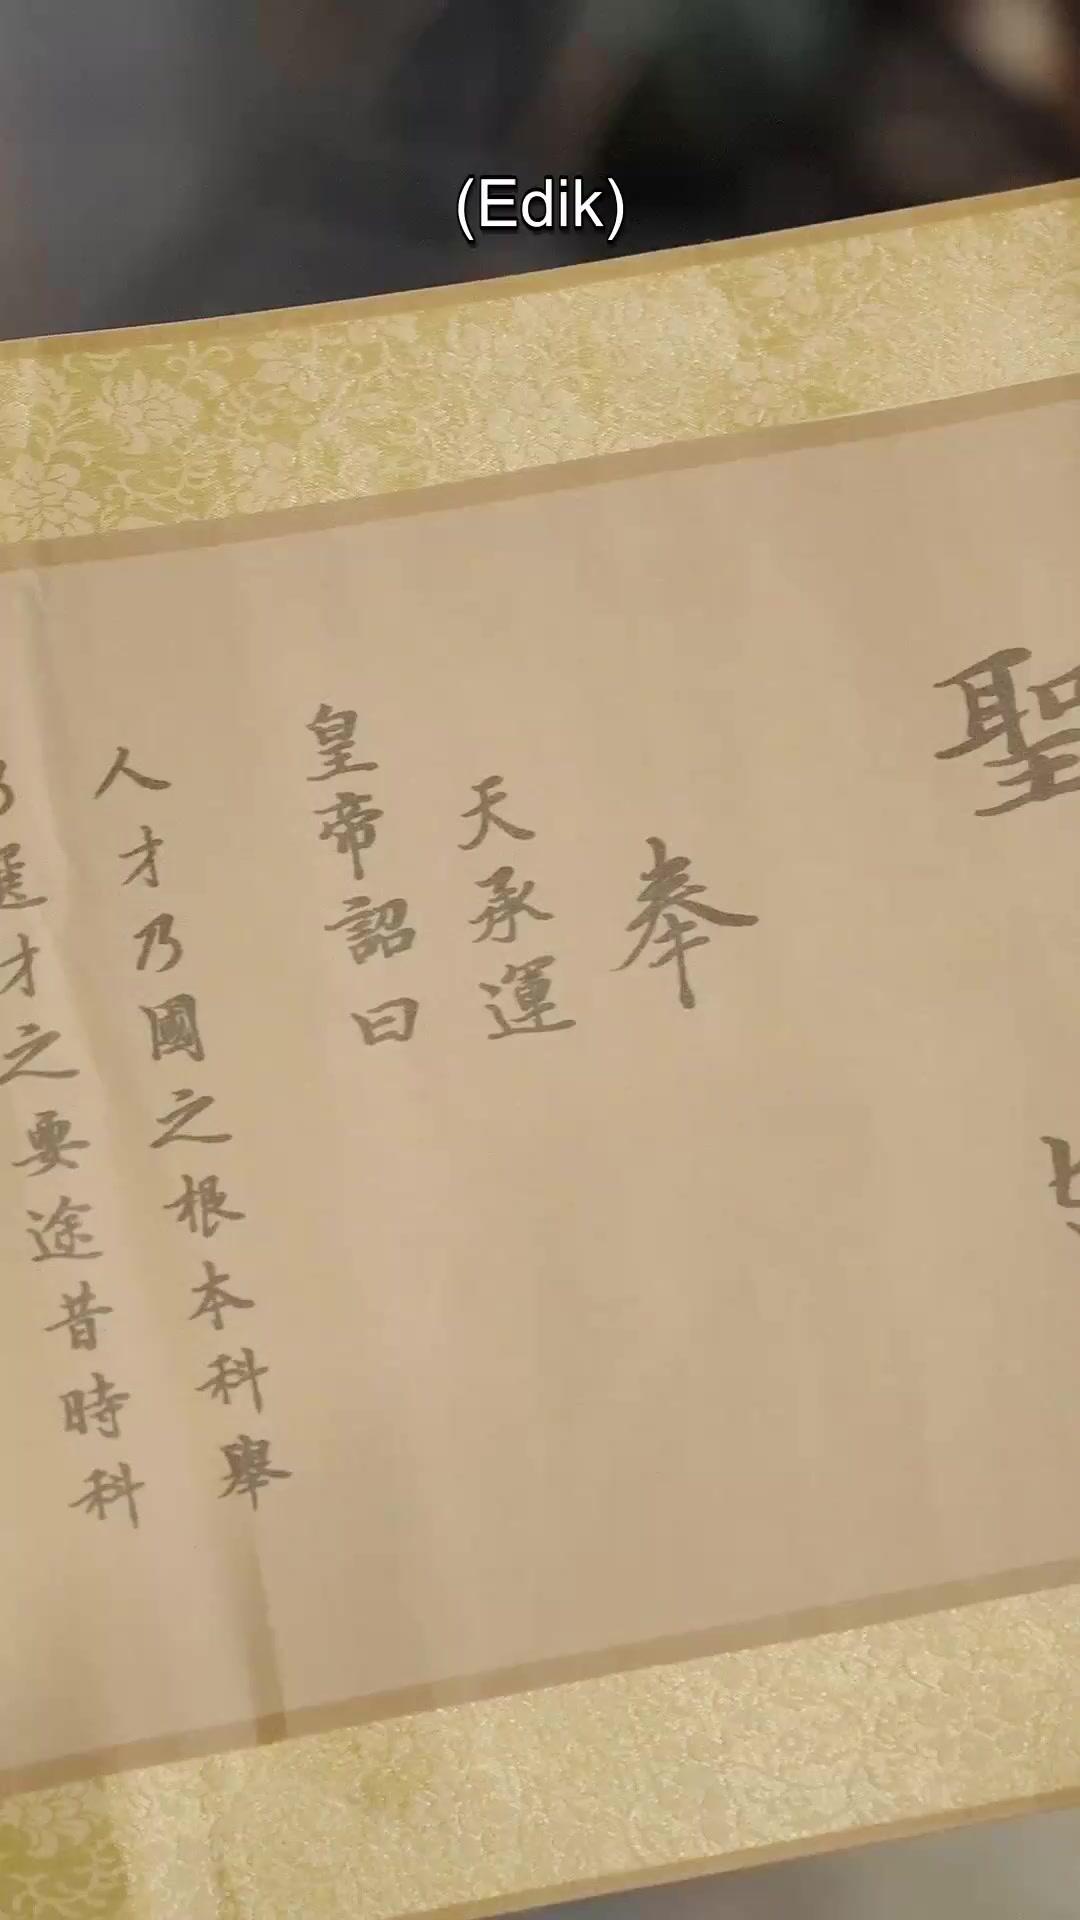 (Edik)
聖
奉
天承運
皇帝詔曰
人才乃國之根本科舉
乃選才之要途昔時科